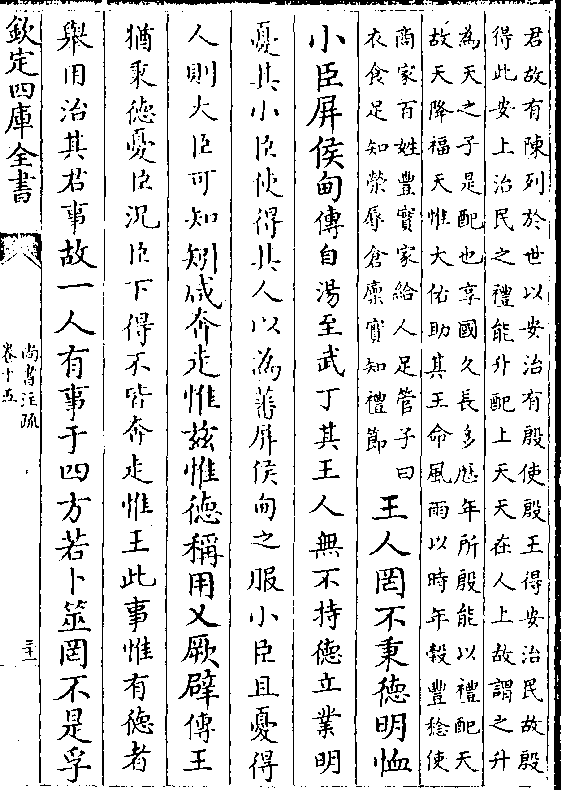 君故有陳列於世以安治有殷使殷王得安治民故殷
得此安上治民之禮能升配上天天在人上故謂之升
為天之子是配也享國久長多歷年所殷能以禮配天
故天降福天惟大佑助其王命風雨以時年穀豐稔使
商家百姓豐實家給人足管子曰
衣食足知榮辱倉廩實知禮節
王人罔不秉德明恤
小臣屏侯甸傳自湯至武丁其王人無不持德立業明
憂其小臣使得其人以為蕃屏侯甸之服小臣且憂得
人則大臣可知矧咸奔走惟茲惟德稱用乂厥辟傳王
猶秉德憂臣況臣下得不皆奔走惟王此事惟有德者
舉用治其君事故一人有事于四方若卜筮罔不是孚
欽定四庫全書
尚書注疏
卷十五